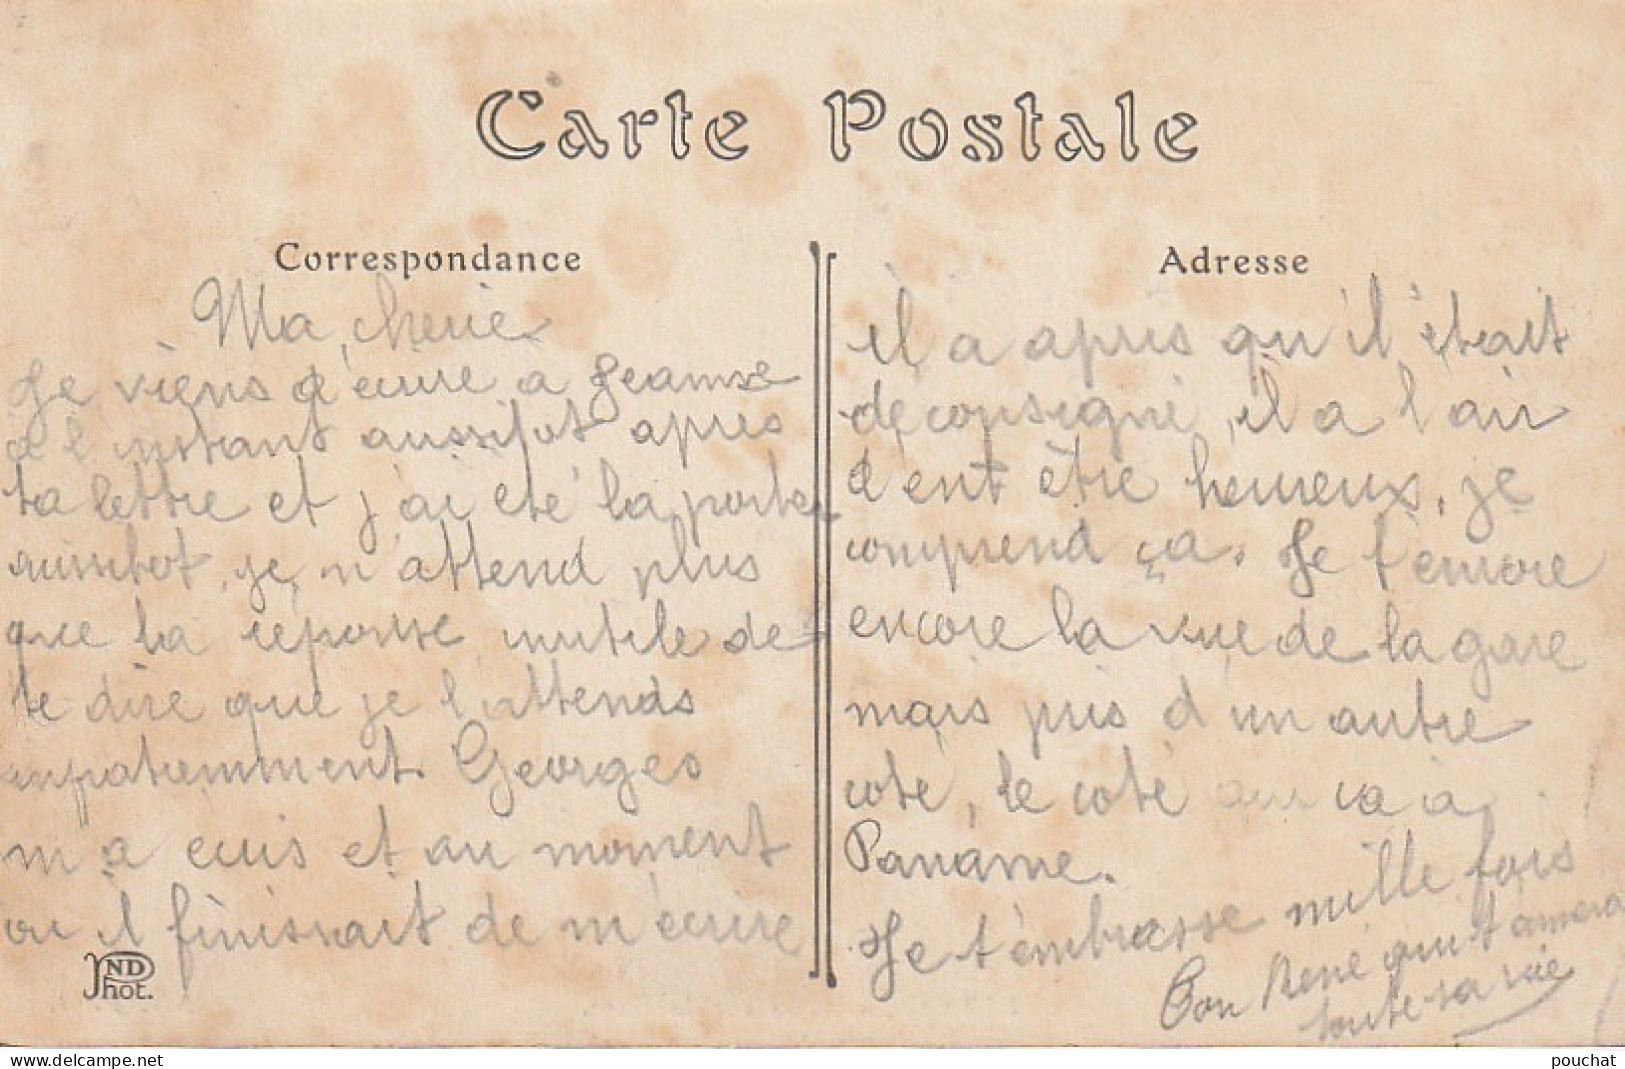 Carte Postale
Correspondance
Ma cherie
Je viens d'ecrire a Jeanne
a l'instant aussitot apres
ta lettre et j'ai été la porter
aussitot, je n'attend plus
que la reponse inutile de
te dire que je l'attends
impatiemment Georges
m'a ecris et au moment
ou il finissait de m'ecrire
ND Phot.
Adresse
il a apris qu'il était
deconsigné, il a l'air
d'ent être heureux, je
comprend ça. Je t'envoie
encore la vue de la gare
mais pris d'un autre
coté, le coté qui va a
Paname.
Je t'embrasse mille fois
Ton René qui t'aimera
toute sa vie
www.delcampe.net
pouchat